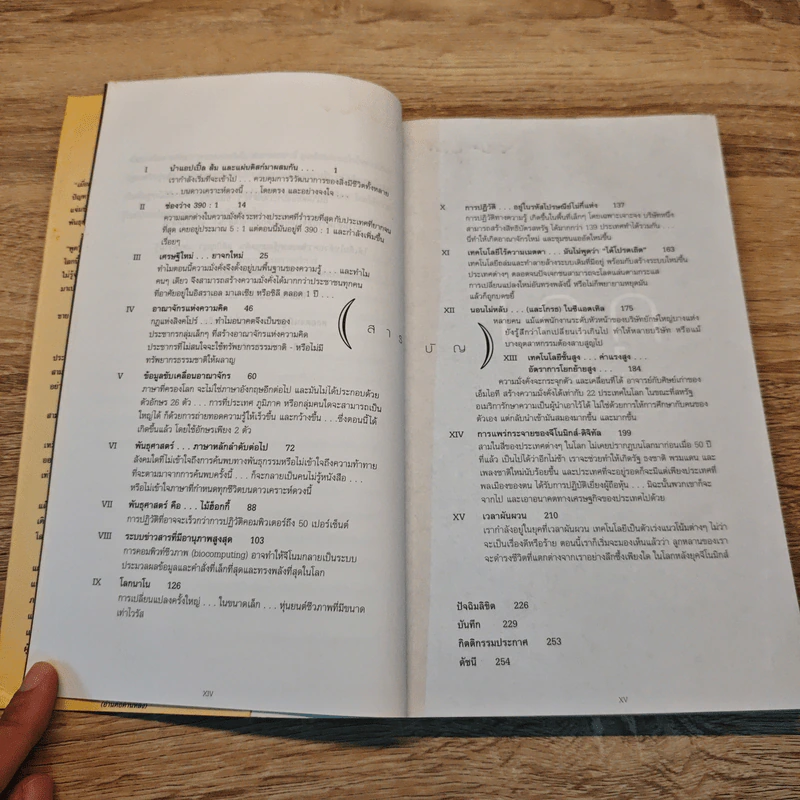 I นำแอปเปิ้ล ส้ม และแผ่นดิสก์มาผสมกัน . . . 1
เรากำลังเริ่มที่จะเข้าไป . . . ควบคุมการวิวัฒนาการของสิ่งมีชีวิตทั้งหลาย
. . . บนดาวเคราะห์ดวงนี้ . . . โดยตรง และอย่างจงใจ
II ช่องว่าง 390 : 1 14
ความแตกต่างในความมั่งคั่งระหว่างประเทศที่ร่ำรวยที่สุดกับประเทศที่ยากจน
ที่สุด เคยอยู่ประมาณ 5 : 1 แต่ตอนนี้มันอยู่ที่ 390 : 1 และกำลังเพิ่มขึ้น
เรื่อยๆ
III เศรษฐีใหม่ . . . ยาจกใหม่ 25
ทำไมตอนนี้ความมั่งคั่งจึงตั้งอยู่บนพื้นฐานของความรู้ . . . และทำไม
คนๆ เดียว จึงสามารถสร้างความมั่งคั่งได้มากกว่าประชาชนทุกคน
ที่อาศัยอยู่ในอิสราเอล มาเลเซีย หรือชิลี ตลอด 1 ปี . . .
IV อาณาจักรแห่งความคิด 46
กฎแห่งสิงคโปร์ . . . ทำไมอนาคตจึงเป็นของ
ประชากรกลุ่มเล็กๆ ที่สร้างอาณาจักรแห่งความคิด
ประชากรที่ไม่สนใจจะใช้ทรัพยากรธรรมชาติ - หรือไม่มี
ทรัพยากรธรรมชาติให้ผลาญ
V ข้อมูลขับเคลื่อนอาณาจักร 60
ภาษาที่ครองโลก จะไม่ใช่ภาษาอังกฤษอีกต่อไป และมันไม่ได้ประกอบด้วย
ตัวอักษร 26 ตัว . . . การที่ประเทศ ภูมิภาค หรือกลุ่มคนใดจะสามารถเป็น
ใหญ่ได้ ก็ด้วยการถ่ายทอดความรู้ให้เร็วขึ้น และกว้างขึ้น . . . ซึ่งตอนนี้ได้
เกิดขึ้นแล้ว โดยใช้อักษรเพียง 2 ตัว
VI พันธุศาสตร์ . . . ภาษาหลักลำดับต่อไป 72
สังคมใดที่ไม่เข้าใจถึงการค้นพบทางพันธุกรรมหรือไม่เข้าใจถึงความท้าทาย
ที่จะตามมาจากการค้นพบครั้งนี้ . . . ก็จะกลายเป็นคนไม่รู้หนังสือ . . .
หรือไม่เข้าใจภาษาที่กำหนดทุกชีวิตบนดาวเคราะห์ดวงนี้
VII พันธุศาสตร์ คือ . . . ไม้ฮ็อกกี้ 88
การปฏิวัติที่อาจจะเร็วกว่าการปฏิวัติคอมพิวเตอร์ถึง 50 เปอร์เซ็นต์
VIII ระบบข่าวสารที่มีอานุภาพสูงสุด 103
การคอมพิวท์ชีวภาพ (biocomputing) อาจทำให้จีโนมกลายเป็นระบบ
ประมวลผลข้อมูลและคำสั่งที่เล็กที่สุดและทรงพลังที่สุดในโลก
IX โลกนาโน 126
การเปลี่ยนแปลงครั้งใหญ่ . . . ในขนาดเล็ก . . . หุ่นยนต์ชีวภาพที่มีขนาด
เท่าไวรัส
XIV
สารบัญ
X การปฏิวัติ . . . อยู่ในรหัสไปรษณีย์ไม่กี่แห่ง 137
การปฏิวัติทางความรู้ เกิดขึ้นในพื้นที่เล็กๆ โดยเฉพาะเจาะจง บริษัทหนึ่ง
สามารถสร้างสิทธิบัตรสหรัฐ ได้มากกว่า 139 ประเทศทำได้รวมกัน . . .
นี่ทำให้เกิดอาณาจักรใหม่ และชุมชนแออัดใหม่ขึ้น
XI เทคโนโลยีไร้ความเมตตา . . . มันไม่พูดว่า "ได้โปรดเถิด" 163
เทคโนโลยีถล่มและทำลายล้างระบบเดิมที่มีอยู่ พร้อมกับสร้างระบบใหม่ขึ้น
ประเทศต่างๆ ตลอดจนปัจเจกชนสามารถจะโลดแล่นตามกระแส
การเปลี่ยนแปลงใหม่อันทรงพลังนี้ หรือไม่ก็พยายามหยุดมัน
แล้วก็ถูกบดขยี้
XII นอนไม่หลับ . . . (และโกรธ) ในซีแอตเทิล 175
หลายคน แม้แต่พนักงานระดับหัวหน้าของบริษัทยักษ์ใหญ่บางแห่ง
ยังรู้สึกว่าโลกเปลี่ยนเร็วเกินไป ทำให้หลายบริษัท หรือแม้
บางอุตสาหกรรมต้องสาบสูญไป
XIII เทคโนโลยีขั้นสูง . . . ค่าแรงสูง . . .
อัตราการโยกย้ายสูง . . . 184
ความมั่งคั่งจะกระจุกตัว และเคลื่อนที่ได้ อาจารย์กับศิษย์เก่าของ
เอ็มไอที สร้างความมั่งคั่งได้เท่ากับ 22 ประเทศในโลก ในขณะที่สหรัฐ
อเมริการักษาความเป็นผู้นำเอาไว้ได้ ไม่ใช่ด้วยการให้การศึกษากับคนของ
ตัวเอง แต่กลับนำเข้ามันสมองมากขึ้น และมากขึ้น
XIV การแพร่กระจายของจีโนมิกส์-ดิจิทัล 199
สามในสี่ของประเทศต่างๆ ในโลก ไม่เคยปรากฏบนโลกมาก่อนเมื่อ 50 ปี
ที่แล้ว เป็นไปได้ว่าอีกไม่ช้า เราจะช่วยทำให้เกิดรัฐ ธงชาติ พรมแดน และ
เพลงชาติใหม่นับร้อยขึ้น และประเทศที่จะอยู่รอดก็จะมีแต่เพียงประเทศที่
พลเมืองของตน ได้รับการปฏิบัติเยี่ยงผู้ถือหุ้น . . . มิฉะนั้นพวกเขาก็จะ
จากไป และเอาอนาคตทางเศรษฐกิจของประเทศไปด้วย
XV เวลาผันผวน 210
เรากำลังอยู่ในยุคที่เวลาผันผวน เทคโนโลยีเป็นตัวเร่งแนวโน้มต่างๆ ไม่ว่า
จะเป็นเรื่องดีหรือร้าย ตอนนี้เราก็เริ่มจะมองเห็นแล้วว่า ลูกหลานของเรา
จะดำรงชีวิตที่แตกต่างจากเราอย่างลึกซึ้งเพียงใด ในโลกหลังยุคจีโนมิกส์
ปัจฉิมลิขิต 226
บันทึก 229
กิตติกรรมประกาศ 253
ดัชนี 254
XV